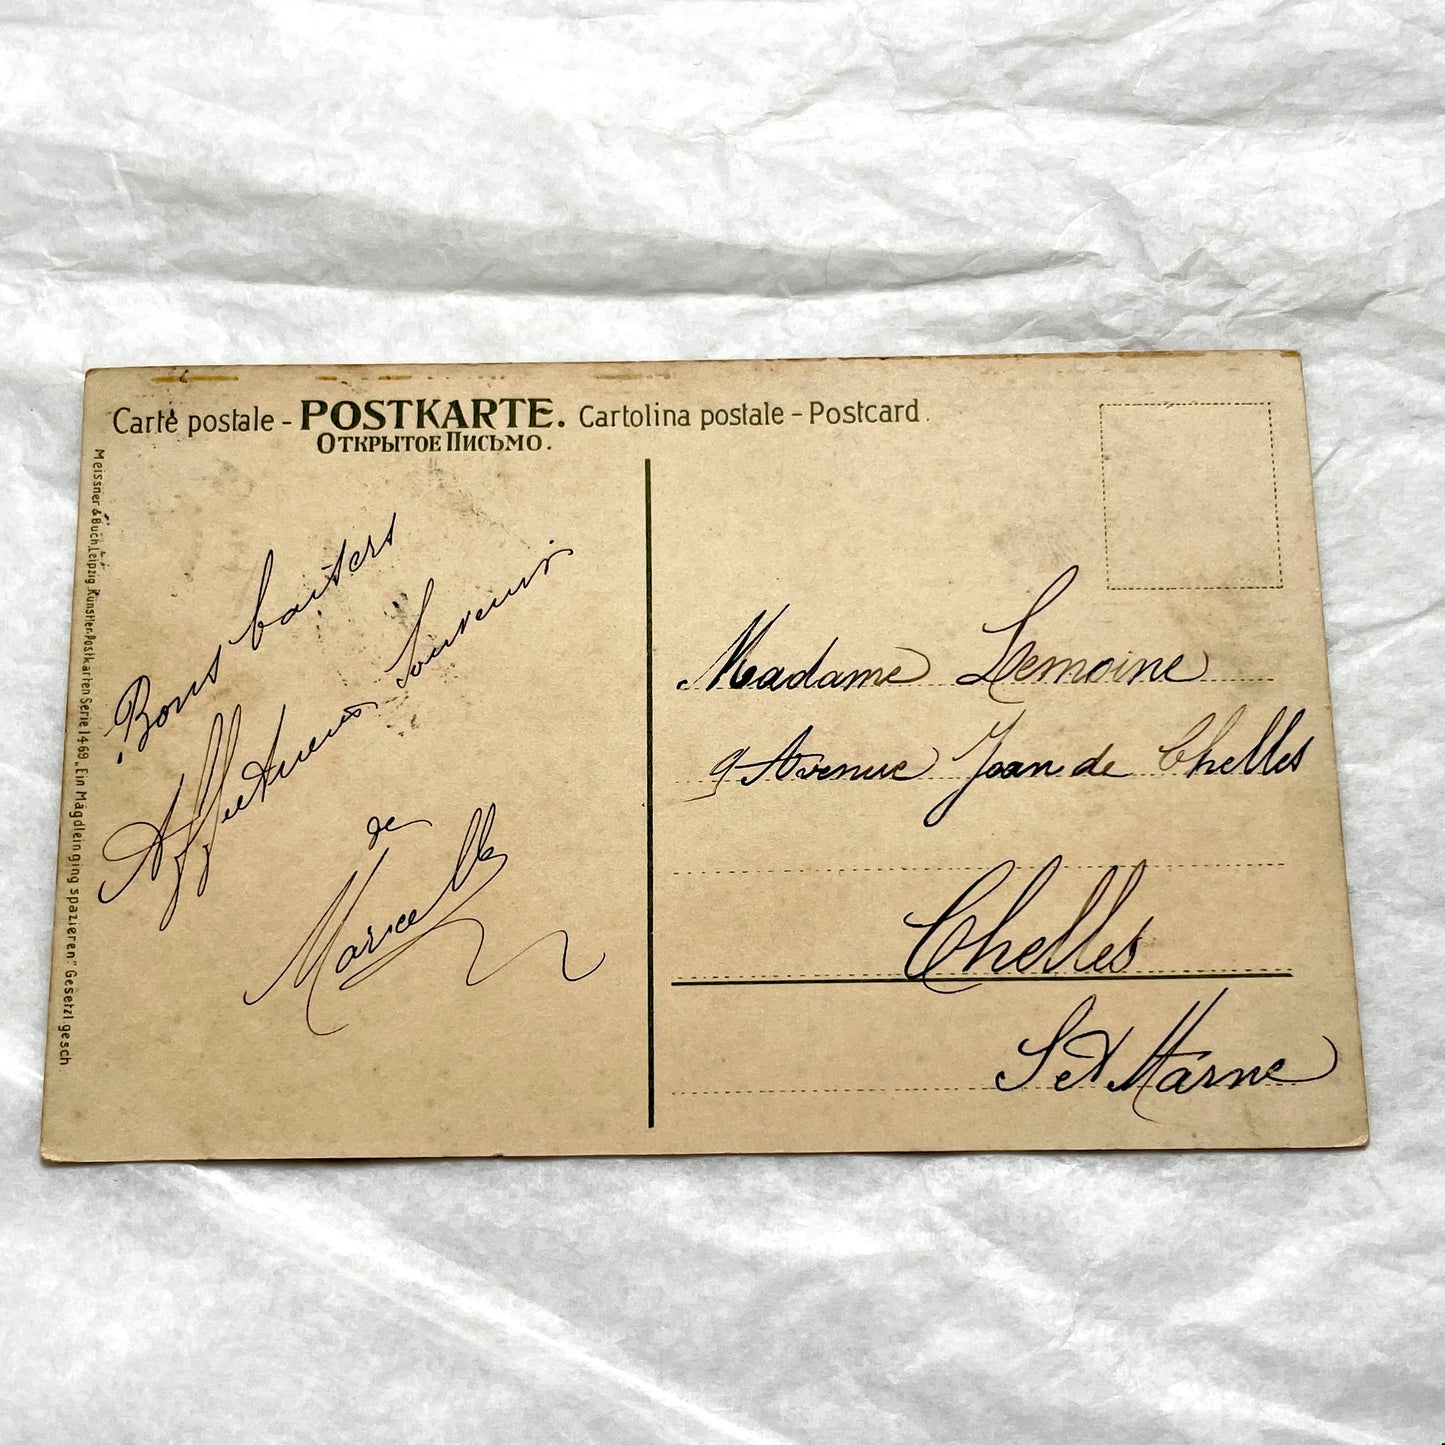 Carte postale - POSTKARTE. Cartolina postale - Postcard.
Открытое Письмо.
Meissner & Buch, Leipzig. Künstler-Postkarten Serie 1469 „Ein Mägdlein ging spazieren." Gesetzl gesch
Bons baisers
Affectueux Souvenir
de
Marcelle
Madame Lemoine
9 Avenue Jean de Chelles
Chelles
Set Marne